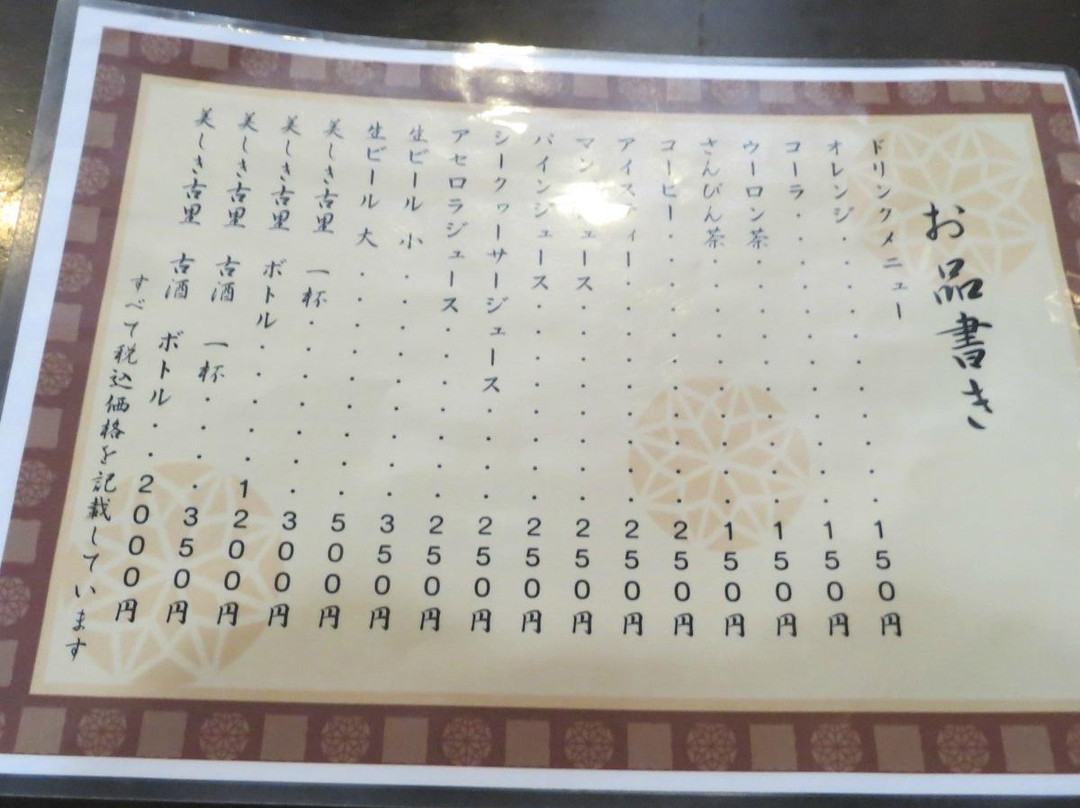 お品書き
ドリンクメニュー
オレンジ・・・・・・・・・・150円
コーラ・・・・・・・・・・・150円
ウーロン茶・・・・・・・・・150円
さんぴん茶・・・・・・・・・150円
コーヒー・・・・・・・・・・250円
アイスティー・・・・・・・・・250円
マンゴージュース・・・・・・・・250円
パインジュース・・・・・・・・250円
シークヮーサージュース・・・・250円
アセロラジュース・・・・・・・250円
生ビール 小・・・・・・・・・350円
生ビール 大・・・・・・・・・500円
美しき古里 一杯・・・・・・・300円
美しき古里 ボトル・・・・・1200円
美しき古里 古酒 一杯・・・・350円
美しき古里 古酒 ボトル・・2000円
すべて税込価格を記載しています